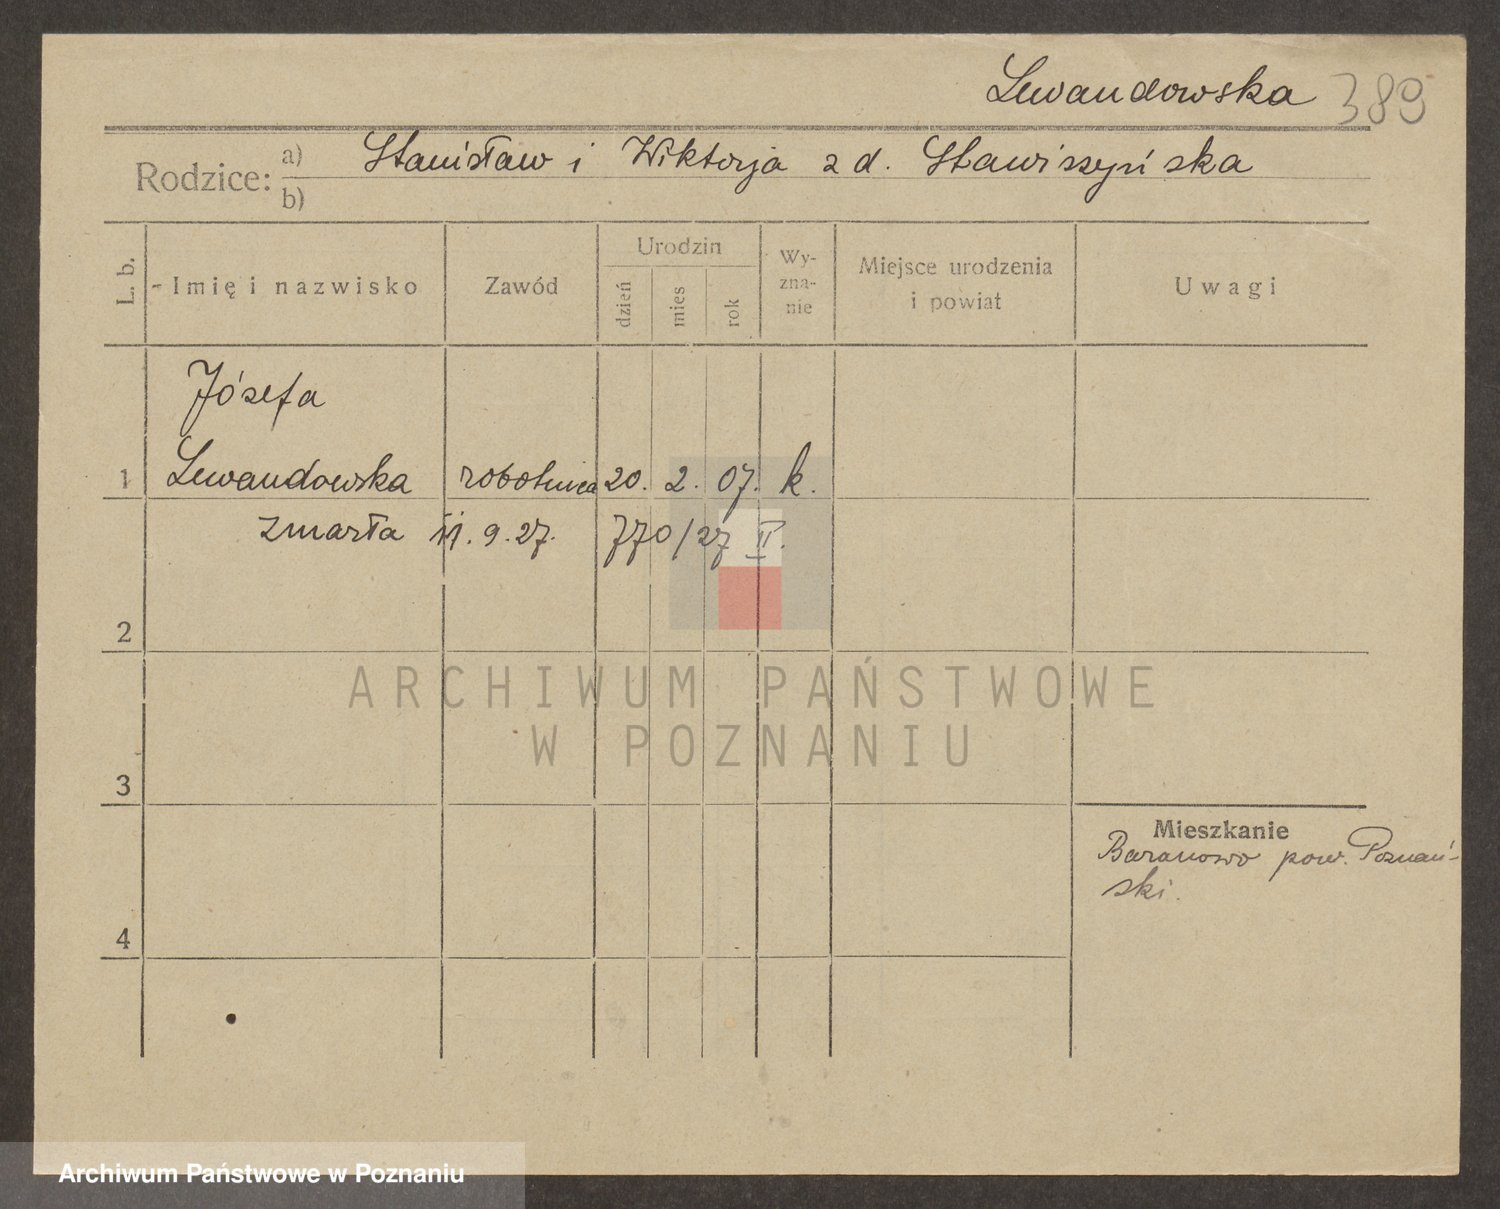 Lewandowska 389
Rodzice: a) Stanisław i Wiktorja z d. Stawiszyńska
b)
L. b.
Imię i nazwisko
Zawód
Urodzin
dzień
mies
rok
Wy-
zna-
nie
Miejsce urodzenia
i powiat
Uwagi
Józefa
1 Lewandowska robotnica 20. 2. 07. k.
zmarła 11.9.27. 770/27 II.
2
ARCHIWUM PAŃSTWOWE
W POZNANIU
3
Mieszkanie
Baranowo pow. Poznań-
ski.
4
Archiwum Państwowe w Poznaniu